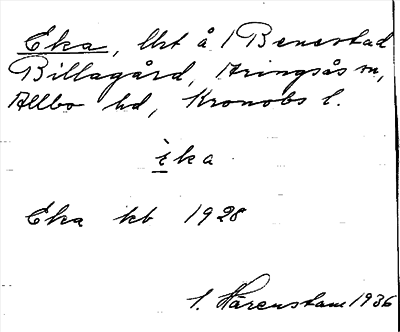 Eka, lht å 1 Benestad
Billagård, Aringsås sn,
Allbo hd, Kronobs l.
èka
Eka kb 1928
S. Härenstam 1936